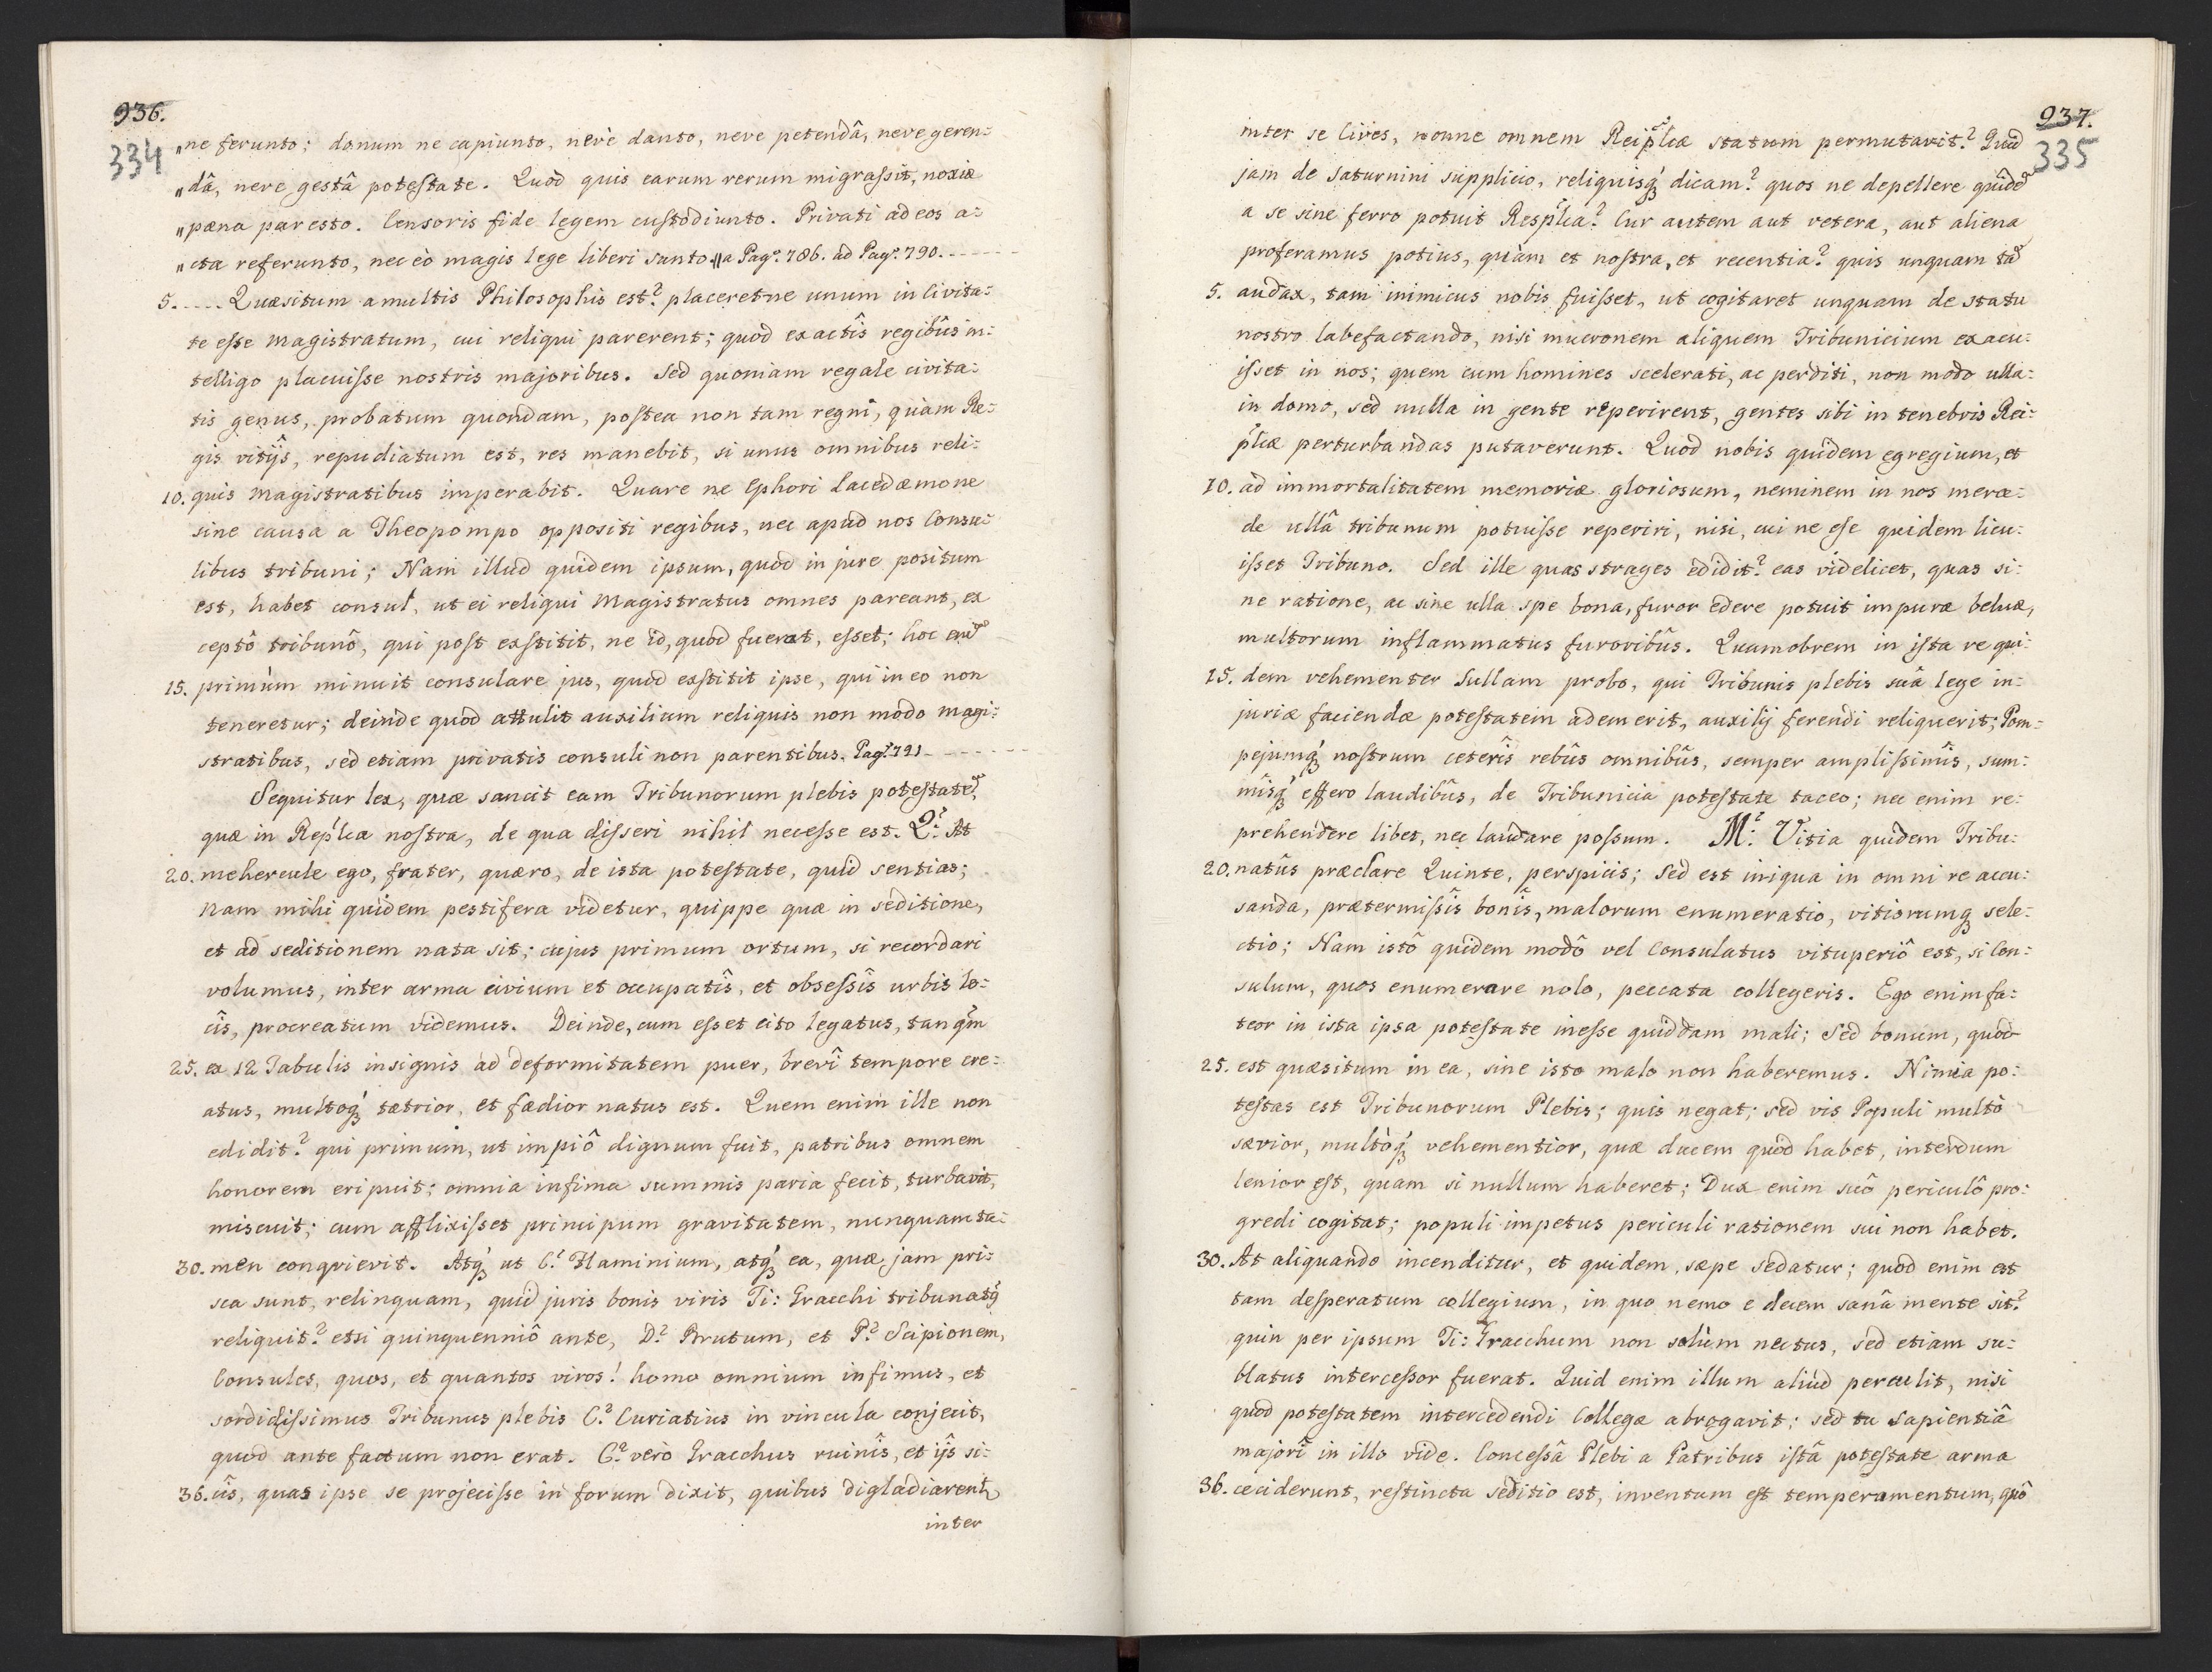 936.
334
„ne ferunto; donum ne capiunto, nevè danto, neve petendâ, neve geren:
„dâ, neve gestâ potestate. Quod quis earum rerum migrassit, noxiæ
„pæna par esto. Censoris fide legem custodiunto. Privati ad eos a:
„cta referunto, nec eò magis lege liberi sunto.„ a Pag.ª 786. ad Pag.ª 790. - - - - - -
5. .... Quæsitum a multis Philosophis est? placeretne unum in Civita:
te esse magistratum, cui reliqui parerent; quod exactîs regibûs in:
telligo placuisse nostris majoribus. Sed quoniam regale civita:
tis genus, probatum quondam, postea non tam regnî, quàm Re:
gis vitijs, repudiatum est, res manebit, si unus omnibus reli:
10. quis Magistratibus imperabit. Quare ne Ephori Lacedæmone
sine causa a Theopompo oppositi regibus, nec apud nos Consu:
libus tribuni; Nam illud quidem ipsum, quod in jure positum
est, habet consul, ut ei reliqui Magistratus omnes pareant, ex
ceptô tribunô, qui post exstitit, ne id, quod fuerat, esset; hoc enī
15. primùm minuit consulare jus, quod exstitit ipse, qui in eo non
teneretur; deinde quod attulit auxilium reliquis non modo magi:
stratibus, sed etiam privatis consuli non parentibus. Pag.ª 791 - - - - - -
Sequitur lex, quæ sancit eam Tribunorum plebis potestatē,
quæ in Rep'lca nostra, de qua disseri nihil necesse est. Q.: At
20. mehercule ego, frater, quæro, de ista potestate, quid sentias;
nam mihi quidem pestifera videtur, quippe quæ in seditione,
et ad seditionem nata sit; cujus primum ortum, si recordari
volumus, inter arma civium et occupatîs, et obsessîs urbis lo:
cîs, procreatum videmus. Deinde, cum esset cito legatus, tanq̃m
25. ex 12 Tabulis insignis ad deformitatem puer, brevî tempore cre:
atus, multoq́ȝ tætrior, et fædior natus est. Quem enim ille non
edidit? qui primum, ut impiô dignum fuit, patribus omnem
honorem eripuit; omnia infima summis paria fecit, turbavit,
miscuit; cum afflixisset principum gravitatem, nunquam ta:
30. men conqvievit. Atq́ȝ ut C.ˢ Flaminium, atq́ȝ ea, quæ jam pri:
sca sunt, relinquam, quid juris bonis viris Ti: Gracchi tribunatq́
reliquit? etsi quinquenniô ante, D.ˀ Brutum, et P.ˀ Scipionem,
Consules, quos, et quantos viros! homo omnium infimus, et
sordidissimus Tribunus plebis C.ˀ Curiatius in vincula conjecit,
quod ante factum non erat. C.ˀ vero Gracchus ruinîs, et ijs si:
36. cîs, quas ipse se projecisse in forum dixit, quibus digladiarentȝ
inter
937.
335
inter se Cives, nonne omnem Reip̃lcæ statum permutavit? Quid
jam de Saturnini supplicio, reliquisq́ȝ dicam? quos ne depellere quidē
a se sine ferro potuit Resp̃lca? Cur autem aut vetera, aut aliena
proferamus potius, quàm et nostra, et recentia? quis unquam tā
5. audax, tam inimicus nobis fuisset, ut cogitaret unquam de statu
nostro labefactando, nisi mucronem aliquem Tribunicium exacu:
isset in nos; quem cum homines scelerati, ac perditi, non modo ulla:
in domo, sed nulla in gente reperirent, gentes sibi in tenebris Rei:
p̃lcæ perturbandas putaverunt. Quod nobis quidem egregium, et
10. ad immortalitatem memoriæ gloriosum, neminem in nos merce:
de ullâ tribunum potuisse reperiri, nisi, cui ne esse quidem licu:
isset Tribuno. Sed ille quas strages edidit? eas videlicet, quas si:
ne ratione, ac sine ulla spe bona, furor edere potuit impuræ beluæ,
multorum inflammatus furoribûs. Quamobrem in ista re qui:
15. dem vehementer Sullam probo, qui Tribunis plebis suâ lege in:
juriæ faciendæ potestatem ademerit, auxilij ferendi reliquerit; Pom:
pejumq́ȝ nostrum ceterîs rebûs omnibûs, semper amplissimîs, sum:
mîsq́ȝ effero laudibûs, de Tribunicia potestate taceo; nec enim re:
prehendere libet, nec laudare possum. M.: Vitia quidem Tribu:
20. natûs præclare Quinte, perspicis; Sed est iniqua in omni re accu:
sanda, prætermissîs bonîs, malorum enumeratio, vitiorumqȝ sele:
ctio; Nam istô quidem modô vel Consulatus vituperiô est, si Con:
sulum, quos enumerare nolo, peccata collegeris. Ego enim fa:
teor in ista ipsa potestate inesse quiddam mali; Sed bonum, quod
25. est quæsitum in ea, sine isto malo non haberemus. Nimia po:
testas est Tribunorum Plebis; quis negat; sed vis Populi multò
sævior, multòq́ȝ vehementior, quæ ducem quòd habet, interdum
lenior est, quam si nullum haberet; Dux enim suô periculô pro:
gredi cogitat; populi impetus periculi rationem sui non habet.
30. At aliquando incenditur, et quidem, sæpe sedatur; quod enim est
tam desperatum collegium, in quo nemo e decem sanâ mente sit?
quin per ipsum Ti: Gracchum non solùm nectus, sed etiam su:
blatus intercessor fuerat. Quid enim illum aliud perculit, nisi
quod potestatem intercedendi Collegæ abrogavit; sed tu sapientiâ
majorî in illo vide. Concessâ Plebi a Patribus istâ potestate arma
36. ceciderunt, restincta seditio est, inventum est temperamentum, quô